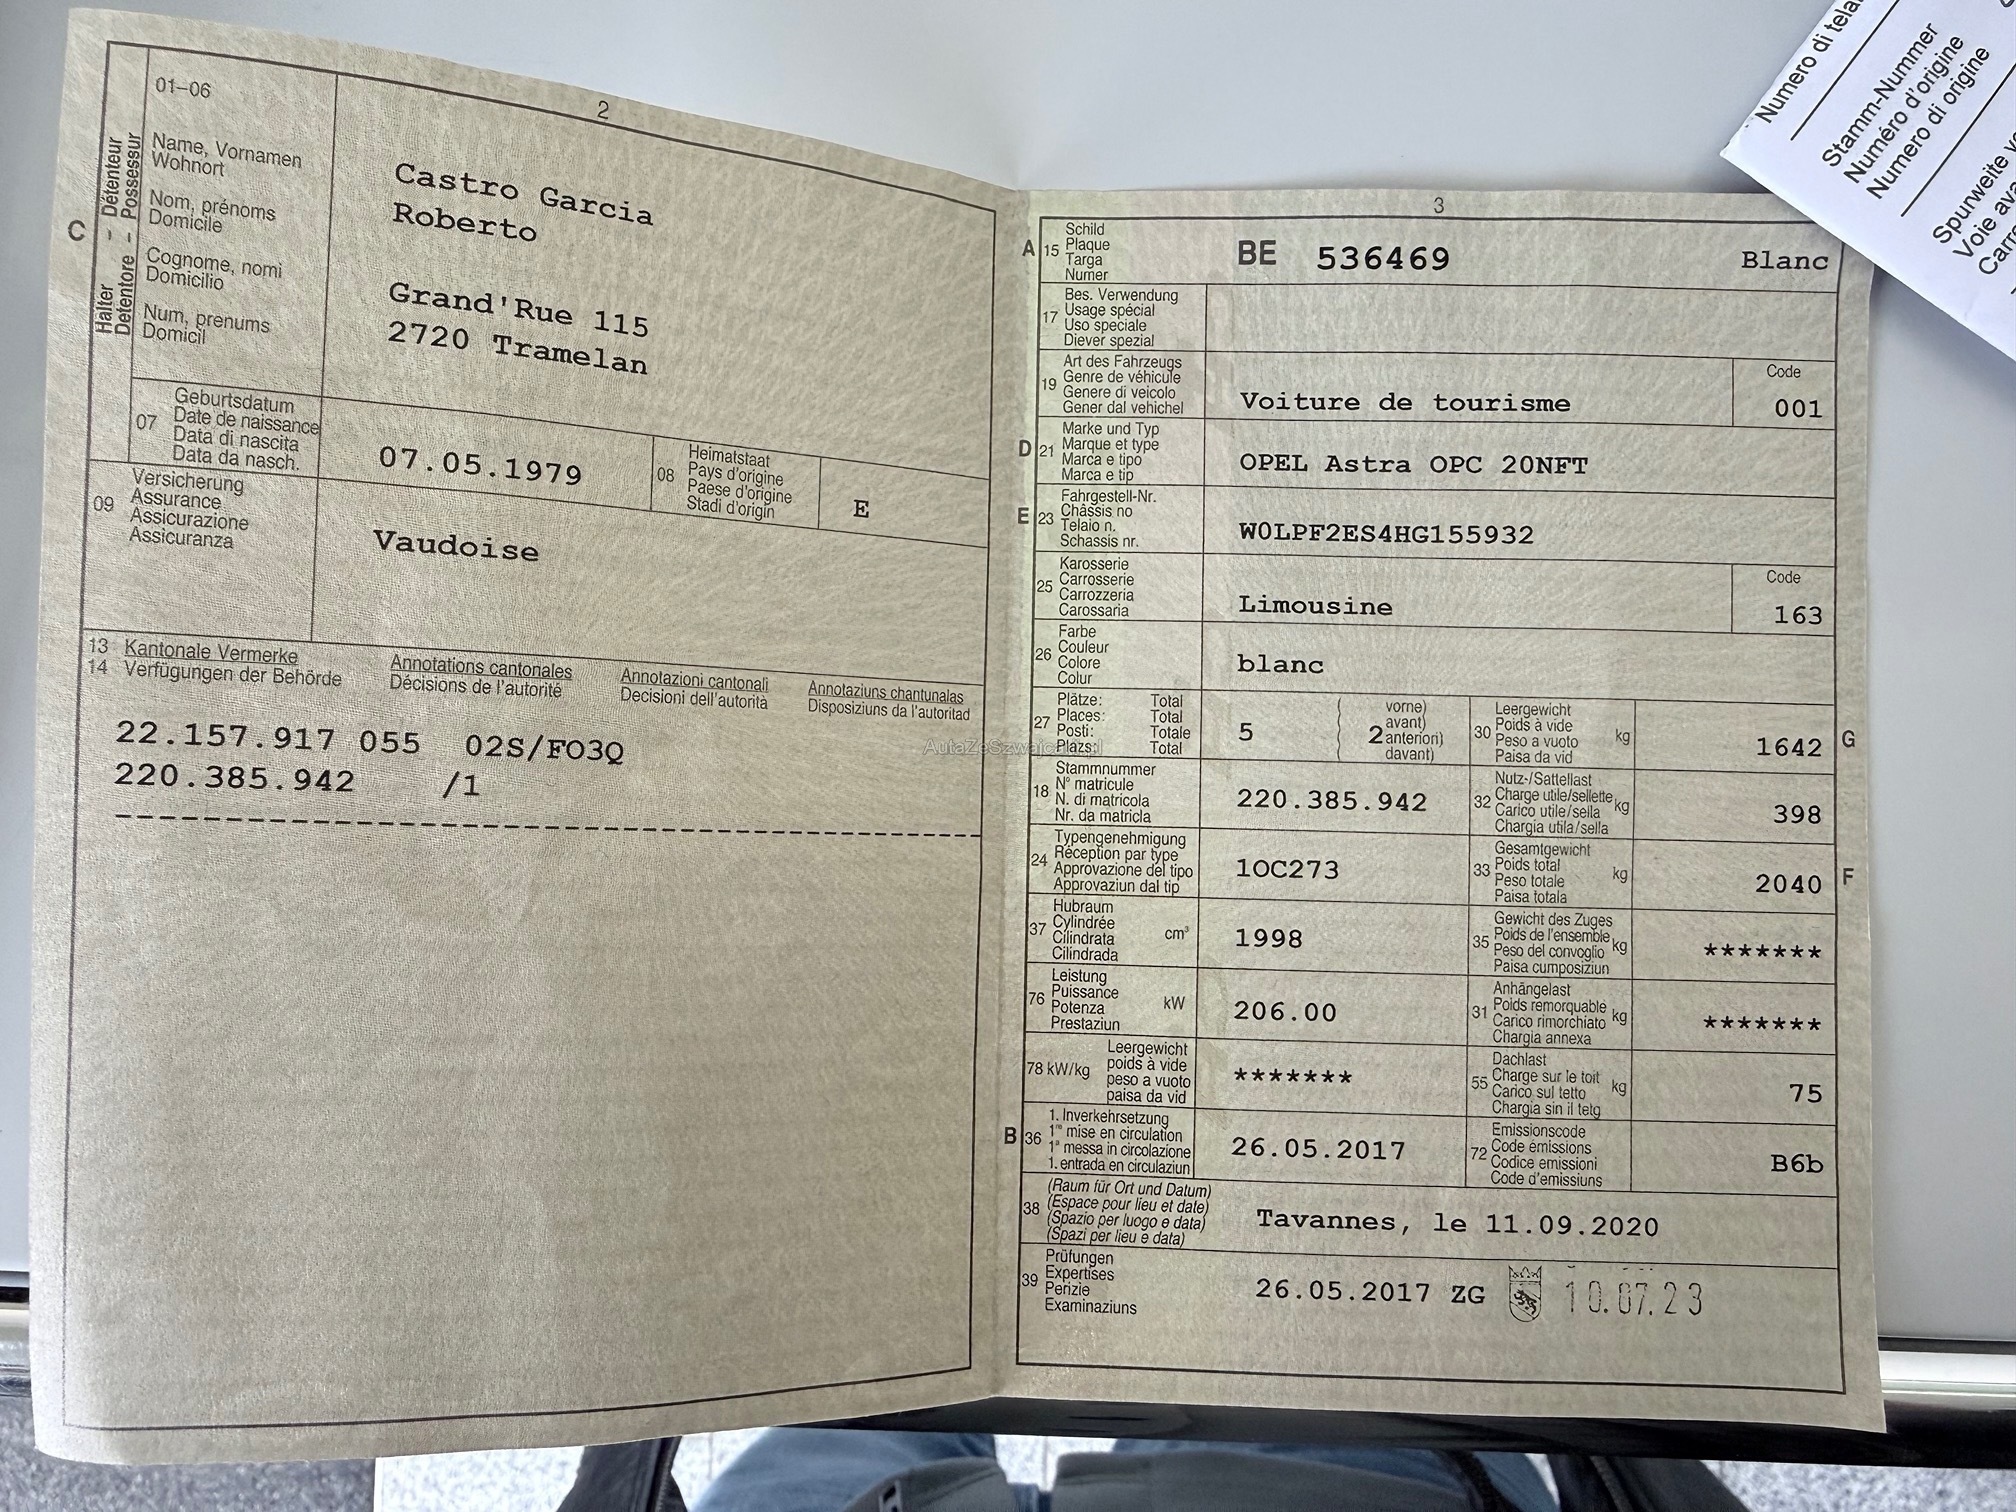 2
01–06
Halter – Détenteur
Detentore – Possessur
C
Name, Vornamen
Wohnort
Nom, prénoms
Domicile
Cognome, nomi
Domicilio
Num, prenums
Domicil
Castro Garcia
Roberto
Grand'Rue 115
2720 Tramelan
07
Geburtsdatum
Date de naissance
Data di nascita
Data da nasch.
07.05.1979
08
Heimatstaat
Pays d'origine
Paese d'origine
Stadi d'origin
E
09
Versicherung
Assurance
Assicurazione
Assicuranza
Vaudoise
13 Kantonale Vermerke Annotations cantonales Annotazioni cantonali Annotaziuns chantunalas
14 Verfügungen der Behörde Décisions de l'autorité Decisioni dell'autorità Disposiziuns da l'autoritad
22.157.917 055 02S/FO3Q
220.385.942 /1
3
A 15
Schild
Plaque
Targa
Numer
BE 536469 Blanc
17
Bes. Verwendung
Usage spécial
Uso speciale
Diever spezial
19
Art des Fahrzeugs
Genre de véhicule
Genere di veicolo
Gener dal vehichel
Voiture de tourisme
Code
001
D 21
Marke und Typ
Marque et type
Marca e tipo
Marca e tip
OPEL Astra OPC 20NFT
E 23
Fahrgestell-Nr.
Châssis no
Telaio n.
Schassis nr.
W0LPF2ES4HG155932
25
Karosserie
Carrosserie
Carrozzeria
Carossaria
Limousine
Code
163
26
Farbe
Couleur
Colore
Colur
blanc
27
Plätze: Total
Places: Total
Posti: Totale
Plazs: Total
5
2
vorne)
avant)
anteriori)
davant)
30
Leergewicht
Poids à vide
Peso a vuoto
Paisa da vid
kg
1642
G
18
Stammnummer
N° matricule
N. di matricola
Nr. da matricla
220.385.942
32
Nutz-/Sattellast
Charge utile/sellette
Carico utile/sella
Chargia utila/sella
kg
398
24
Typengenehmigung
Réception par type
Approvazione del tipo
Approvaziun dal tip
1OC273
33
Gesamtgewicht
Poids total
Peso totale
Paisa totala
kg
2040
F
37
Hubraum
Cylindrée
Cilindrata
Cilindrada
cm³
1998
35
Gewicht des Zuges
Poids de l'ensemble
Peso del convoglio
Paisa cumposiziun
kg
*******
76
Leistung
Puissance
Potenza
Prestaziun
kW
206.00
31
Anhängelast
Poids remorquable
Carico rimorchiato
Chargia annexa
kg
*******
78 kW/kg
Leergewicht
poids à vide
peso a vuoto
paisa da vid
*******
55
Dachlast
Charge sur le toit
Carico sul tetto
Chargia sin il tetg
kg
75
B 36
1. Inverkehrsetzung
1re mise en circulation
1a messa in circolazione
1. entrada en circulaziun
26.05.2017
72
Emissionscode
Code émissions
Codice emissioni
Code d'emissiuns
B6b
38
(Raum für Ort und Datum)
(Espace pour lieu et date)
(Spazio per luogo e data)
(Spazi per lieu e data)
Tavannes, le 11.09.2020
39
Prüfungen
Expertises
Perizie
Examinaziuns
26.05.2017 ZG 10.07.23
Stamm-Nummer
Numéro d'origine
Numero di origine
Numero di
Spurweite